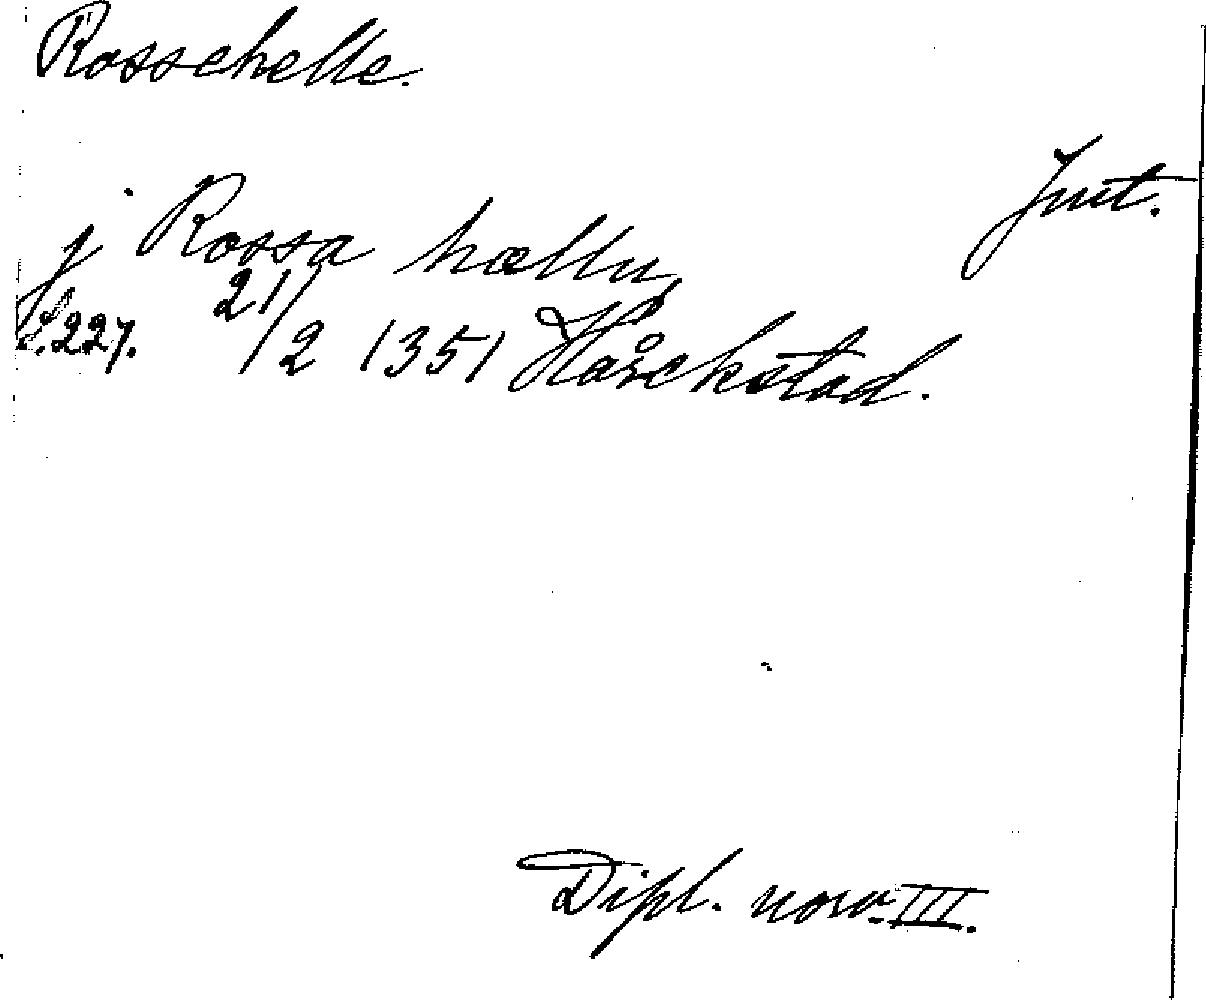 Rossehelle.
Jnt.
j Rossa hællu
S. 227. 21/2 1351 Hårekstad.
Dipl. norv. III.